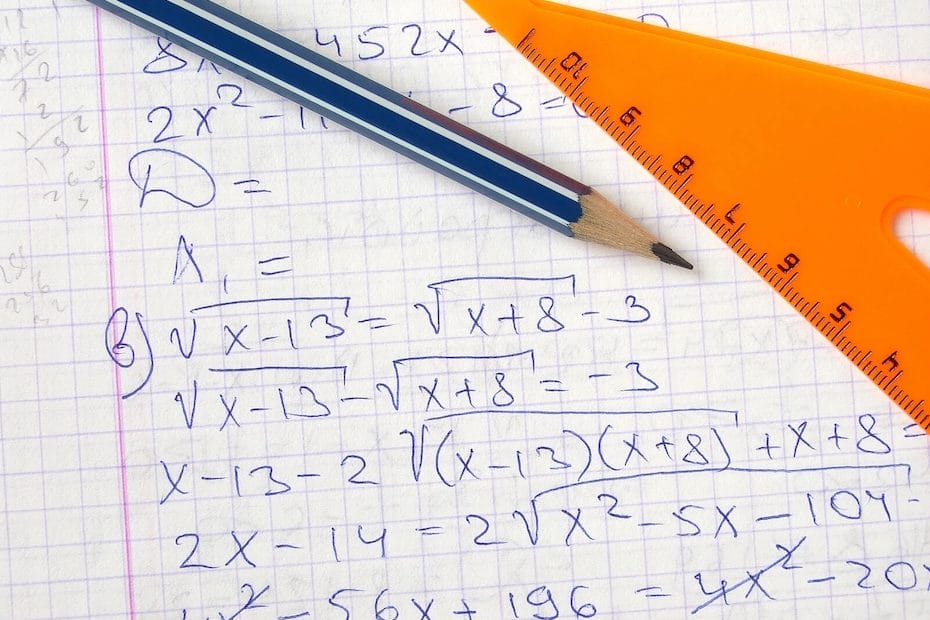 452x -
2x² - - 8 =
D =
X₁ =
в) √x-13 = √x+8 - 3
√x-13 - √x+8 = -3
x-13-2 √(x-13)(x+8) + x+8 =
2x-14 = 2√x²-5x-104
² - 56x + 196 = 4x² - 20
10 9 8 7 6 5 4